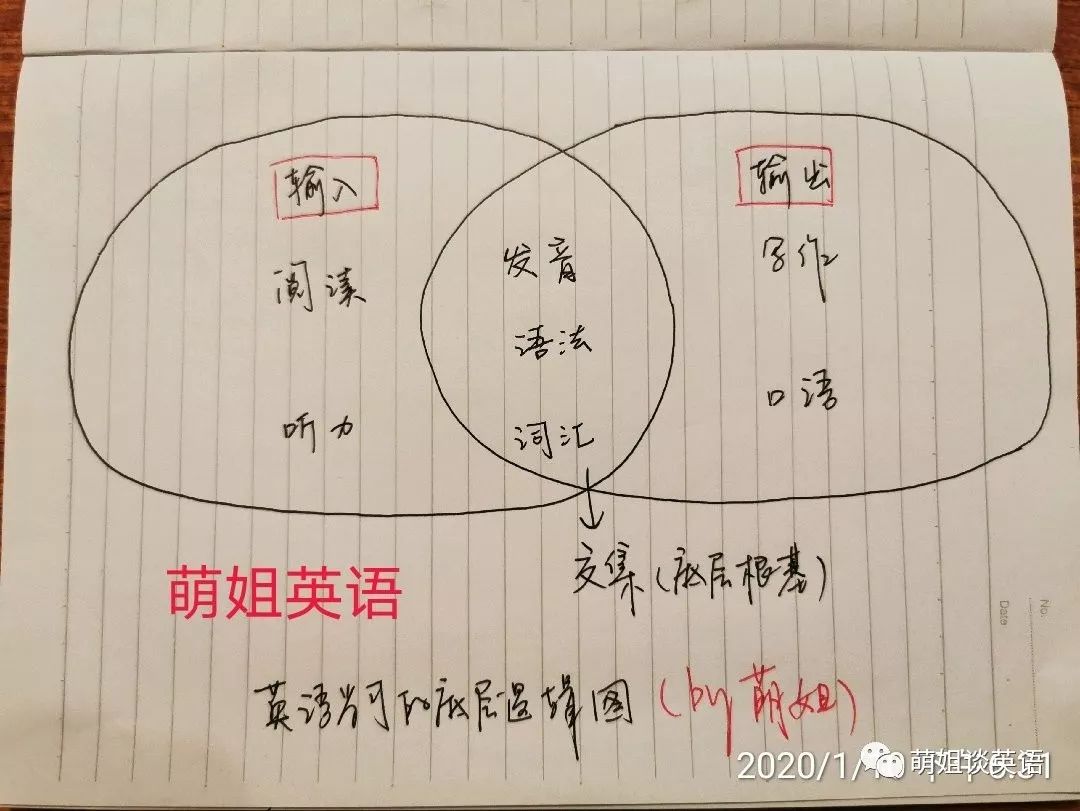 输入
阅读
听力
发音
语法
词汇
输出
写作
口语
交集(底层根基)
萌姐英语
英语学习的底层逻辑图(by 萌姐)
No.
Date
2020/1/
萌姐谈英语